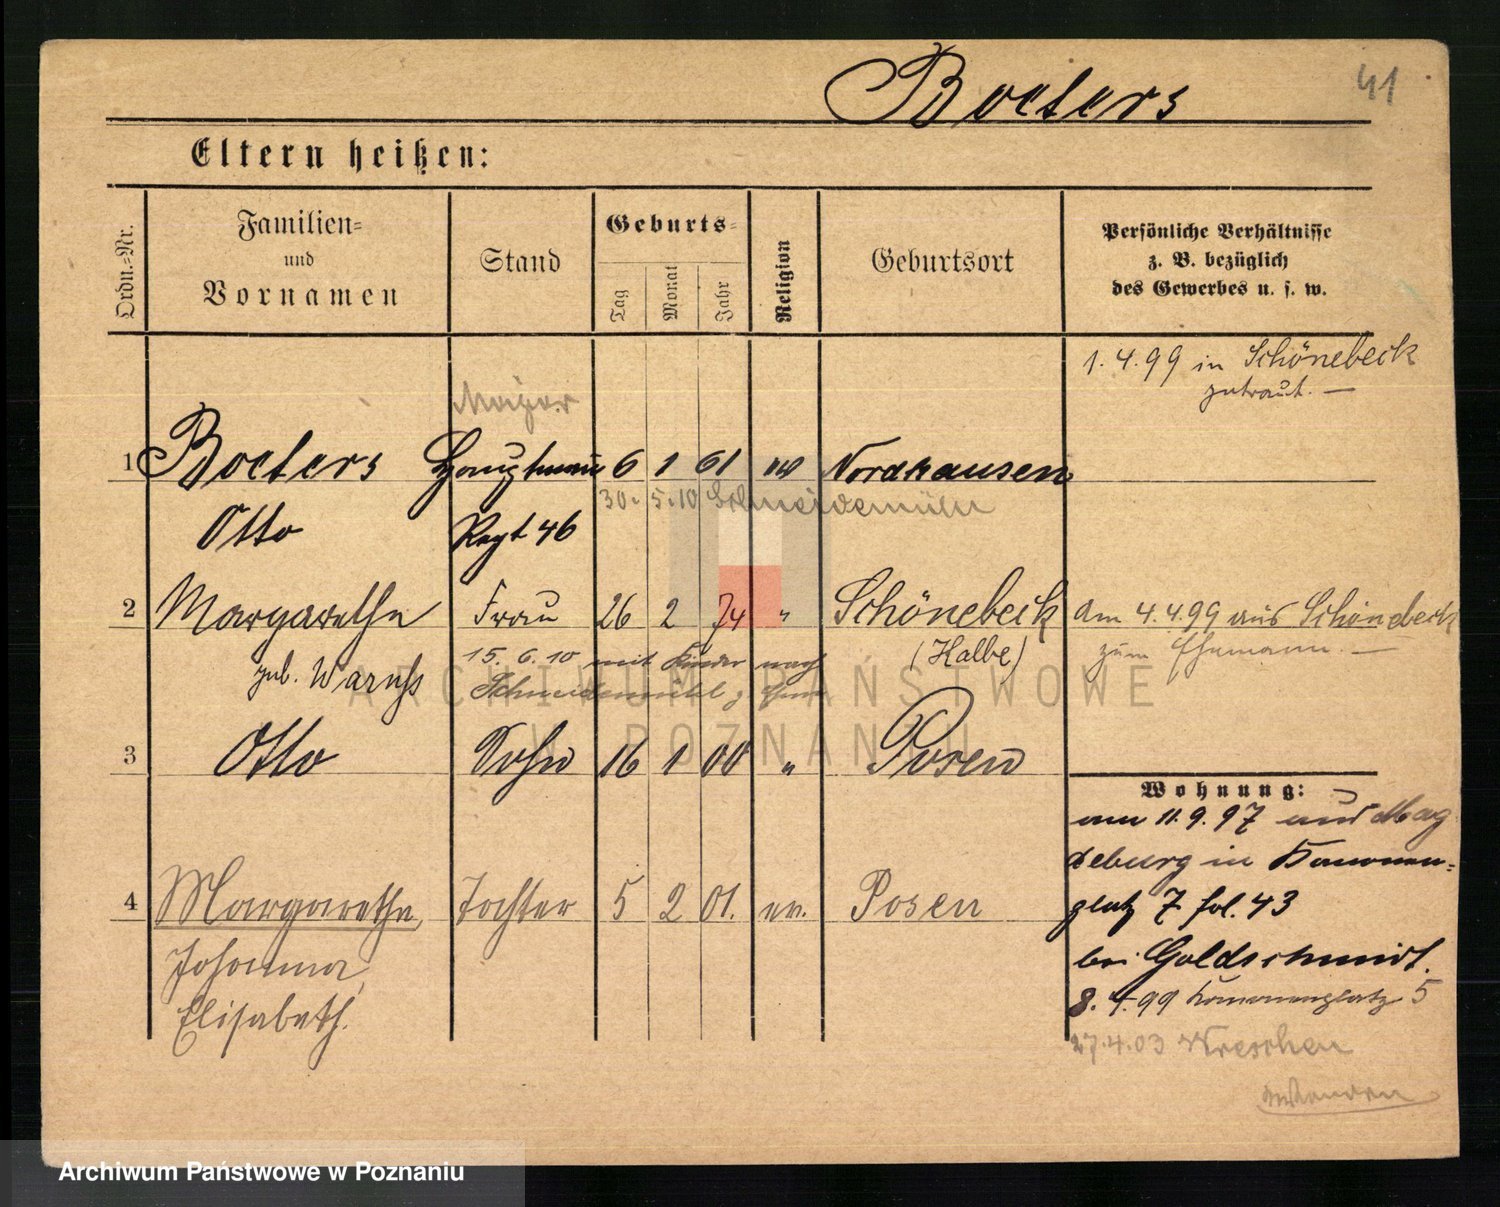 Boeters
41
Eltern heißen:
Ordn.-Nr.
Familien-
und
Vornamen
Stand
Geburts-
Tag
Monat
Jahr
Religion
Geburtsort
Persönliche Verhältnisse
z. B. bezüglich
des Gewerbes u. s. w.
1. 4. 99 in Schönebeck
getraut. —
Major
1 Boeters Hauptmann 6 1 61 ev Nordhausen
30. 5. 10 Schneidemühl
Otto Regt 46
2 Margarethe Frau 26 2 74 " Schönebeck
(Halbe)
am 4. 4. 99 aus Schönebeck
zum Ehemann. —
geb.
15. 6. 10 mit Kinder nach
Schneidemühl
3 Otto Sohn 16 1 00 " Posen
4 Margarethe, Tochter 5 2 01. ev. Posen
Johanna,
Elisabeth.
Wohnung:
am 11. 9. 97 aus Mag
deburg in Kanonen-
platz 7 fol. 43
bei Goldschmidt.
8. 4. 99 Kanonenplatz 5
27. 4. 03 Wreschen
ARCHIWUM PAŃSTWOWE
W POZNANIU
Archiwum Państwowe w Poznaniu